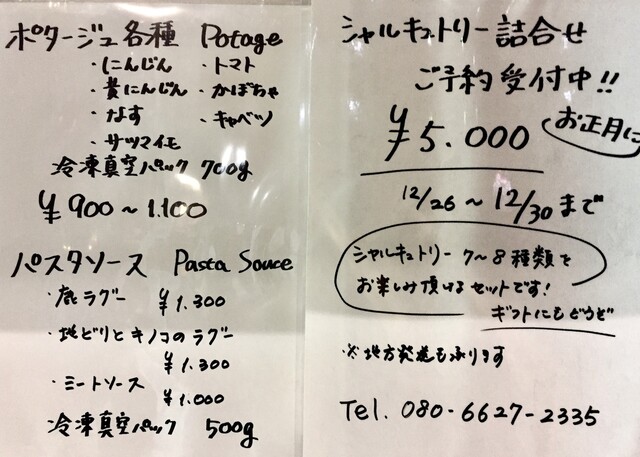 ポタージュ各種 Potage
・にんじん ・トマト
・黄にんじん ・かぼちゃ
・なす ・キャベツ
・サツマイモ
冷凍真空パック 700g
¥900〜1.100
パスタソース Pasta Souce
・鹿ラグー ¥1.300
・地どりとキノコのラグー
¥1.300
・ミートソース
¥1.000
冷凍真空パック 500g
シャルキュトリー詰合せ
ご予約受付中!!
¥5.000 お正月に
12/26〜12/30まで
シャルキュトリー 7〜8種類を
お楽しみ頂けるセットです!
ギフトにもどうぞ
※地方発送も承ります
Tel. 080-6627-2335